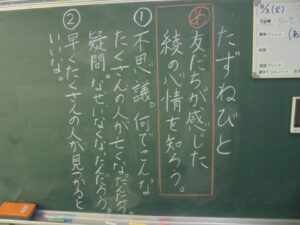 たずねびと
め
友だちが感じた
綾の心情を知ろう。
①不思議。何でこんな
たくさんの人が亡くなったんだろう。
疑問。なぜいなくなったんだろう。
②早くたくさんの人が見つかると
いいな。